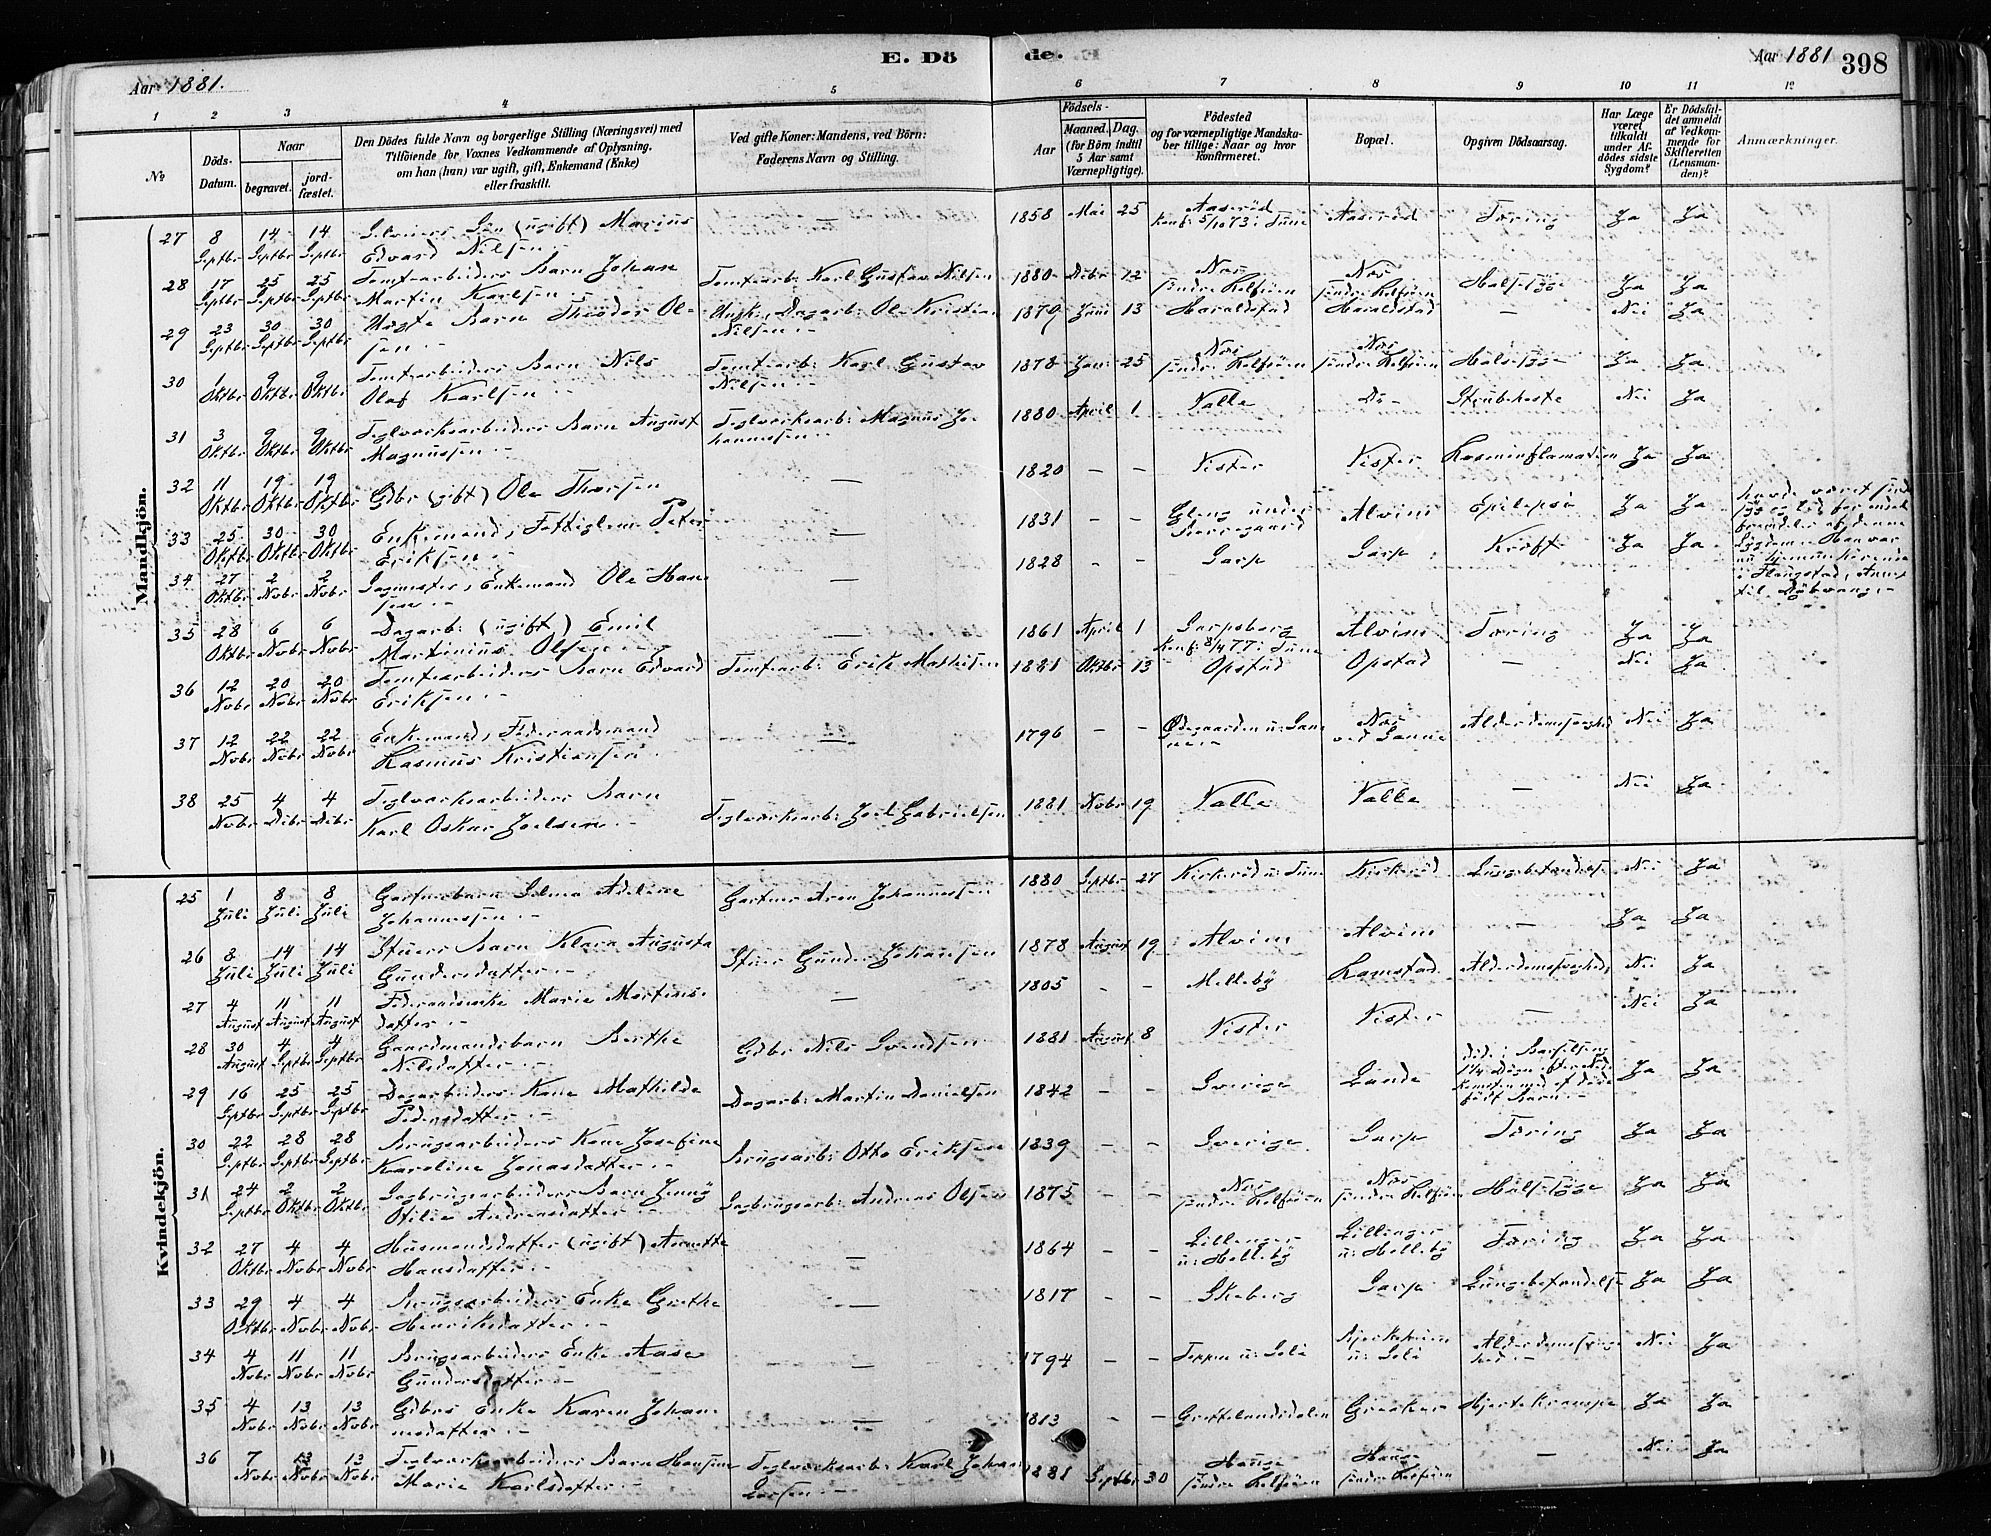 E. Dö de.
Aar 1881.
Aar 1881 398
1 2 3 4 5 6 7 8 9 10 11 12
No
Döds-Datum.
Naar
begravet.
jord-fæstet.
Den Dödes fulde Navn og borgerlige Stilling (Næringsvei) med
Tilföiende for Voxnes Vedkommende af Oplysning,
om han (hun) var ugift, gift, Enkemand (Enke)
eller fraskilt.
Ved gifte Koner: Mandens, ved Börn:
Faderens Navn og Stilling.
Födsels-
Aar
Maaned. Dag.
(for Börn indtil
5 Aar samt
Værnepligtige).
Födested
og for værnepligtige Mandska-
ber tillige: Naar og hvor
konfirmeret.
Bopæl.
Opgiven Dödsaarsag.
Har Læge
været
tilkaldt
under Af-
dödes sidste
Sygdom?
Er Dödsfal-
det anmeldt
af Vedkom-
mende for
Skifteretten
(Lensman-
den)?
Anmærkninger.
Mandkjön.
27 8 Septbr 14 Septbr 14 Septbr Selveiers Sön (ugift) Marius Edvard Nilsen — 1858 Mai 25 Aaseröd Konf: 5/10 73 i Tune Aaseröd Tæring Ja Ja
28 17 Septbr 25 Septbr 25 Septbr Tomtearbeiders Barn Johan Martin Karlsen Tomtearb: Karl Gustav Nilsen 1880 Debr 12 Næs söndre Rolfsöen Næs söndre Rolfsöen Halssyge Ja Ja
29 23 Septbr 30 Septbr 30 Septbr Uægte Barn Theodor Olsen Ungk., Dagarb: Ole Kristian Nilsen 1879 Juni 13 Haraldstad Haraldstad — Nei Ja
30 1 Oktbr 9 Oktbr 9 Oktbr Tomtearbeiders Barn Nils Olaf Karlsen Tomtearb: Karl Gustav Nilsen 1878 Janr 25 Næs söndre Rolfsöen Næs söndre Rolfsöen Halssyge Ja Ja
31 3 Oktbr 9 Oktbr 9 Oktbr Teglværksarbeiders Barn August Magnussen Teglværksarb: Magnus Johannessen 1880 April 1 Valle Do Strubehoste Nei Ja
32 11 Oktbr 19 Oktbr 19 Oktbr Gdbr (gift) Ole Thorsen — 1820 — — Vister Vister Ja Ja
33 25 Oktbr 30 Oktbr 30 Oktbr Enkemand, Fattiglem Peter Eriksen — 1831 — — Gleng under Alvim Epilepsi Ja Ja
34 27 Oktbr 2 Nobr 2 Nobr Sagmester, Enkemand Ole Hansen — 1828 — — Sarp Sarp Kræft Ja Ja
35 28 Oktbr 6 Nobr 6 Nobr Dagarb: (ugift) Emil Martinius Olsen — 1861 April 1 Sarpsborg Konf: 8/4 77 i Tune Alvim Tæring Ja Ja
36 12 Nobr 20 Nobr 20 Nobr Tomtearbeiders Barn Edvard Eriksen Tomtearb: Erik Mathisen 1881 Oktbr 13 Opstad Opstad — Nei Ja
37 12 Nobr 22 Nobr 22 Nobr Enkemand, Föderaadsmand Rasmus Kristiansen — 1796 — — Ödegaarden u: Sanne Næs ved Sanne Alderdomssvaghed Nei Ja
38 25 Nobr 4 Debr 4 Debr Teglværksarbeiders Barn Karl Oskar Joelsen Teglværksarb: Joel Gabrielsen 1881 Nobr 19 Valle Valle — Nei Ja
Kvindekjön.
25 1 Juli 8 Juli 8 Juli Gartnerbarn Selma Adeline Johannessen Gartner Aron Johannessen 1880 Septbr 27 Kirkeröd u: Tune Kirkeröd Lungebetændelse Nei Ja
26 8 Juli 14 Juli 14 Juli Stuers Barn Klara Augusta Gundersdatter Stuer Gunder Johansen 1878 August 19 Alvim Alvim — Ja Ja
27 4 August 11 August 11 August Föderaadsenke Marie Mortensdatter — 1805 — — Melleby Ramstad Alderdomssvaghed Nei Ja
28 30 August 4 Septbr 4 Septbr Gaardmandsbarn Berthe Nilsdatter Gdbr Nils Svendsen 1881 August 8 Vister Vister — Nei Ja
29 16 Septbr 25 Septbr 25 Septbr Dagarbeiders Kone Mathilde Pedersdatter Dagarb: Martin Danielsen 1842 — — Sverige Lande Döde i Barselseng 1 1/4 Dögn efter Nedkomsten med et dödfödt Barn Ja Ja
30 22 Septbr 28 Septbr 28 Septbr Brugsarbeiders Kone Josefine Karoline Jonasdatter Brugsarb: Otto Eriksen 1839 — — Sverige Sarp Tæring Ja Ja
31 24 Septbr 2 Oktbr 2 Oktbr Sagbrugsarbeiders Barn Jenny Otilie Andreasdatter Sagbrugsarb: Andreas Olsen 1875 — — Næs söndre Rolfsöen Næs söndre Rolfsöen Halssyge Ja Ja
32 27 Oktbr 4 Nobr 4 Nobr Husmandsdatter (ugift) Annette Hansdatter — 1864 — — Lillenger u: Melleby Lillenger u: Melleby Tæring Ja Ja
33 29 Oktbr 4 Nobr 4 Nobr Brugsarbeiders Enke Grethe Henriksdatter — 1817 — — Skeberg Sarp Lungebetændelse Ja Ja
34 4 Nobr 11 Nobr 11 Nobr Brugsarbeiders Enke Aase Gundersdatter — 1794 — — Teppen u: Soli Bjerkeheim u: Soli Alderdomssvaghed Nei Ja
35 4 Nobr 13 Nobr 13 Nobr Gdbrs Enke Karen Johannesdatter — 1813 — — Greaker Hjertekrampe Ja Ja
36 7 Nobr 13 Nobr 13 Nobr Teglværksarbeiders Barn Hansine Marie Karlsdatter Teglværksarb: Karl Johan Larsen 1881 Septbr 30 Hauge söndre Rolfsöen Hauge söndre Rolfsöen — Nei Ja